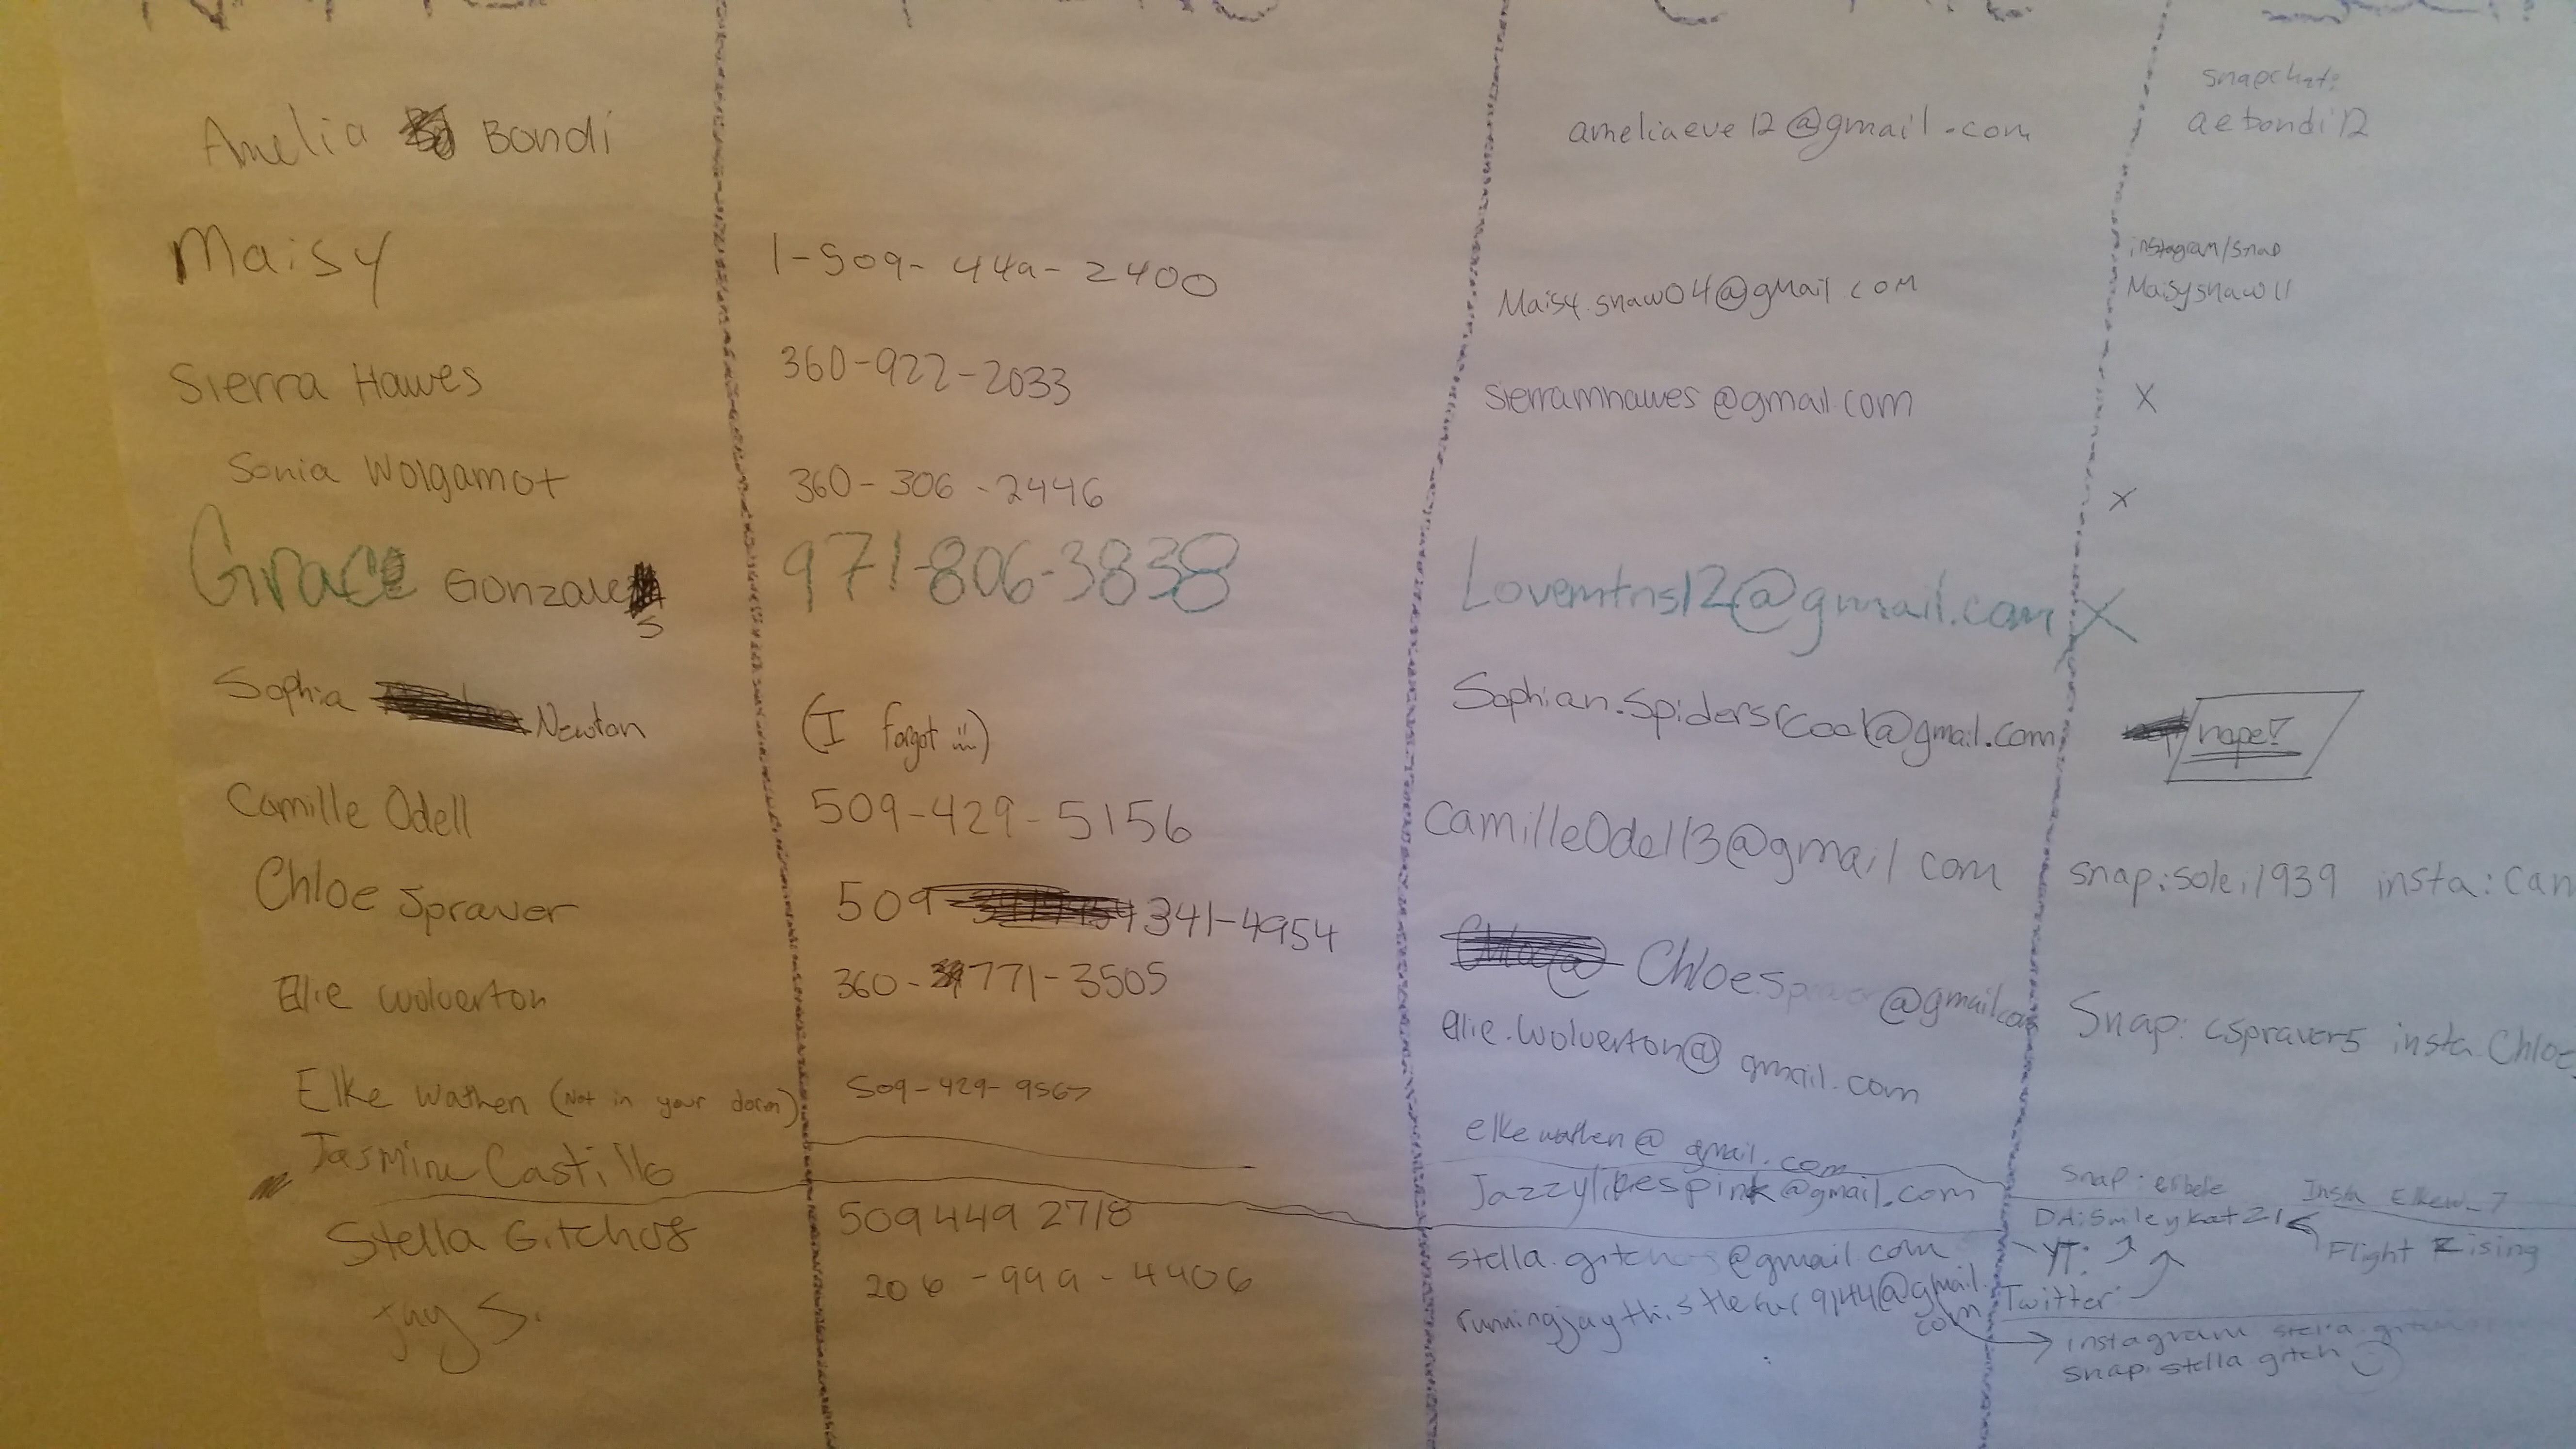 snapchat:
Amelia Bondi ameliaeve12@gmail.com aebondi12
instagram/snap
Maisy 1-509-449-2400 Maisy.shaw04@gmail com Maisyshaw11
Sierra Hawes 360-922-2033 sierramhawes@gmail.com X
Sonia Wolgamot 360-306-2446 X
Grace Gonzales 971-806-3838 Lovemtns12@gmail.com X
Sophia Newton (I forgot) Sophian.Spidersrcool@gmail.com nope!
Camille Odell 509-429-5156 camilleOdell3@gmail com snap:soleil939 insta: Can
Chloe Spraver 509 341-4954 Chloe.Spraver@gmail.com Snap: cspraver5 insta Chloe
Ellie Wolverton 360-771-3505 ellie.wolverton@gmail.com
Elke Wathen (Not in your dorm) 509-429-9567 elkewathen@gmail.com Snap: Insta Elkew_7
Jasmine Castillo Jazzylikespink@gmail.com DA:Smileykat21
YT: Flight Rising
Twitter:
Stella Gitchos 509 449 2718 stella.gitchos@gmail.com instagram stella.gitchos
snap:stella.gitch
Jay S. 206-999-4406 runningjaythistlefur9144@gmail.com